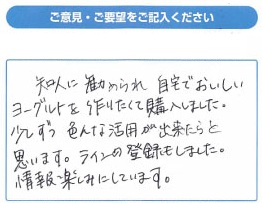 ご意見・ご要望をご記入ください
知人に勧められ 自宅でおいしい
ヨーグルトを作りたくて購入しました。
少しずつ 色んな活用が出来たらと
思います。ラインの登録もしました。
情報楽しみにしています。